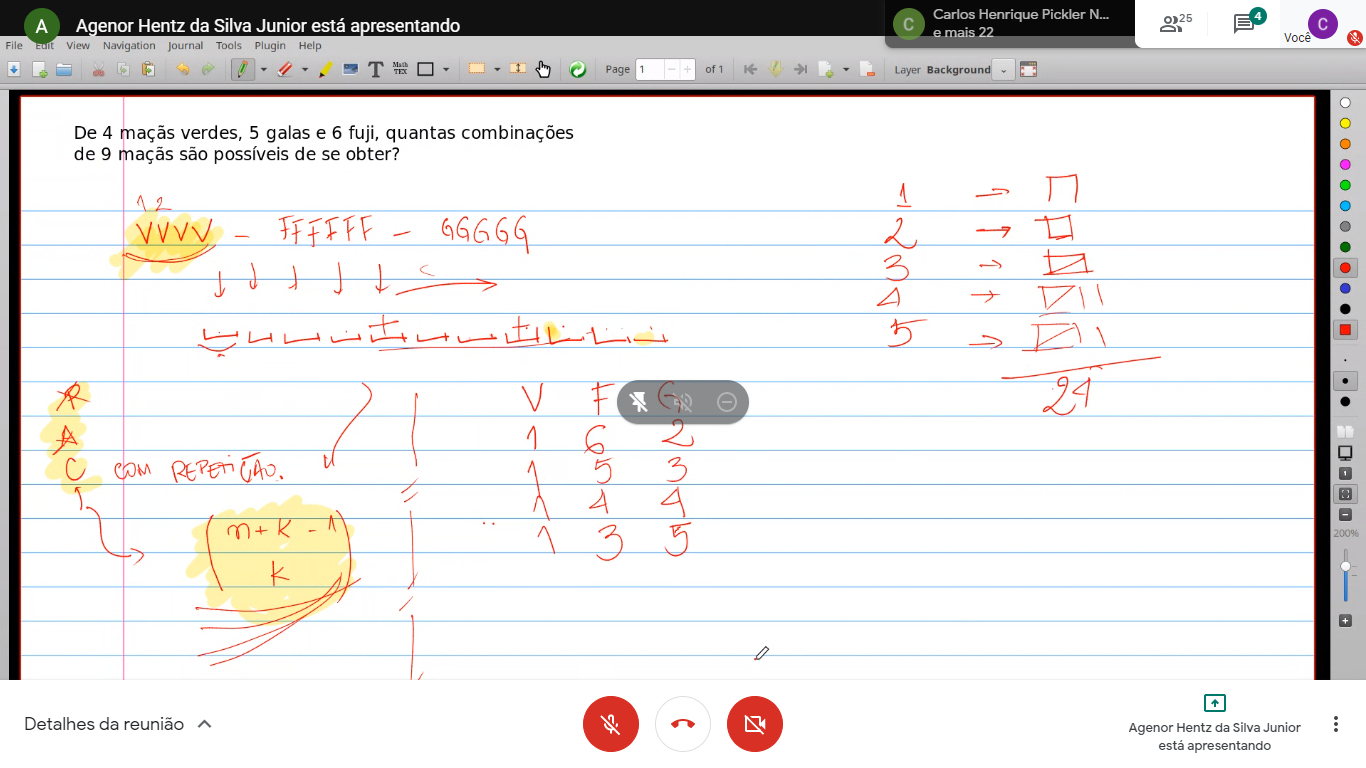 A Agenor Hentz da Silva Junior está apresentando
C Carlos Henrique Pickler N...
e mais 22
25
4
Você
C
File Edit View Navigation Journal Tools Plugin Help
T Math TEX Page 1 of 1 Layer Background
De 4 maçãs verdes, 5 galas e 6 fuji, quantas combinações
de 9 maçãs são possíveis de se obter?
1 2
VVVV - FFFFFF - GGGGG
1 →
2 →
3 →
4 →
5 →
24
R
A
C COM REPETIÇÃO.
(n + k - 1
k)
V F G
1 6 2
1 5 3
1 4 4
1 3 5
200%
Detalhes da reunião
Agenor Hentz da Silva Junior
está apresentando